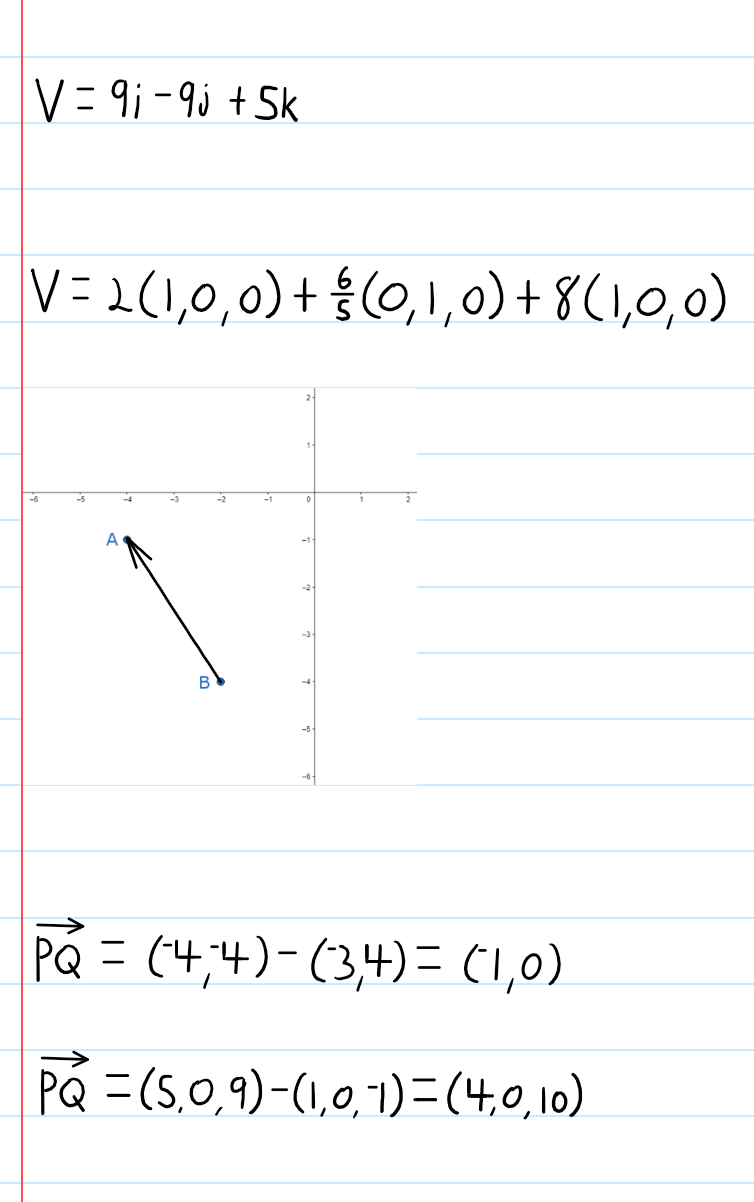 V = 9i - 9j + 5k
V = 2(1,0,0) + 6/5(0,1,0) + 8(1,0,0)
2
1
-6 -5 -4 -3 -2 -1 0 1 2
A -1
-2
-3
B -4
-5
-6
PQ→ = (-4,-4) - (-3,4) = (-1,0)
PQ→ = (5,0,9) - (1,0,-1) = (4,0,10)